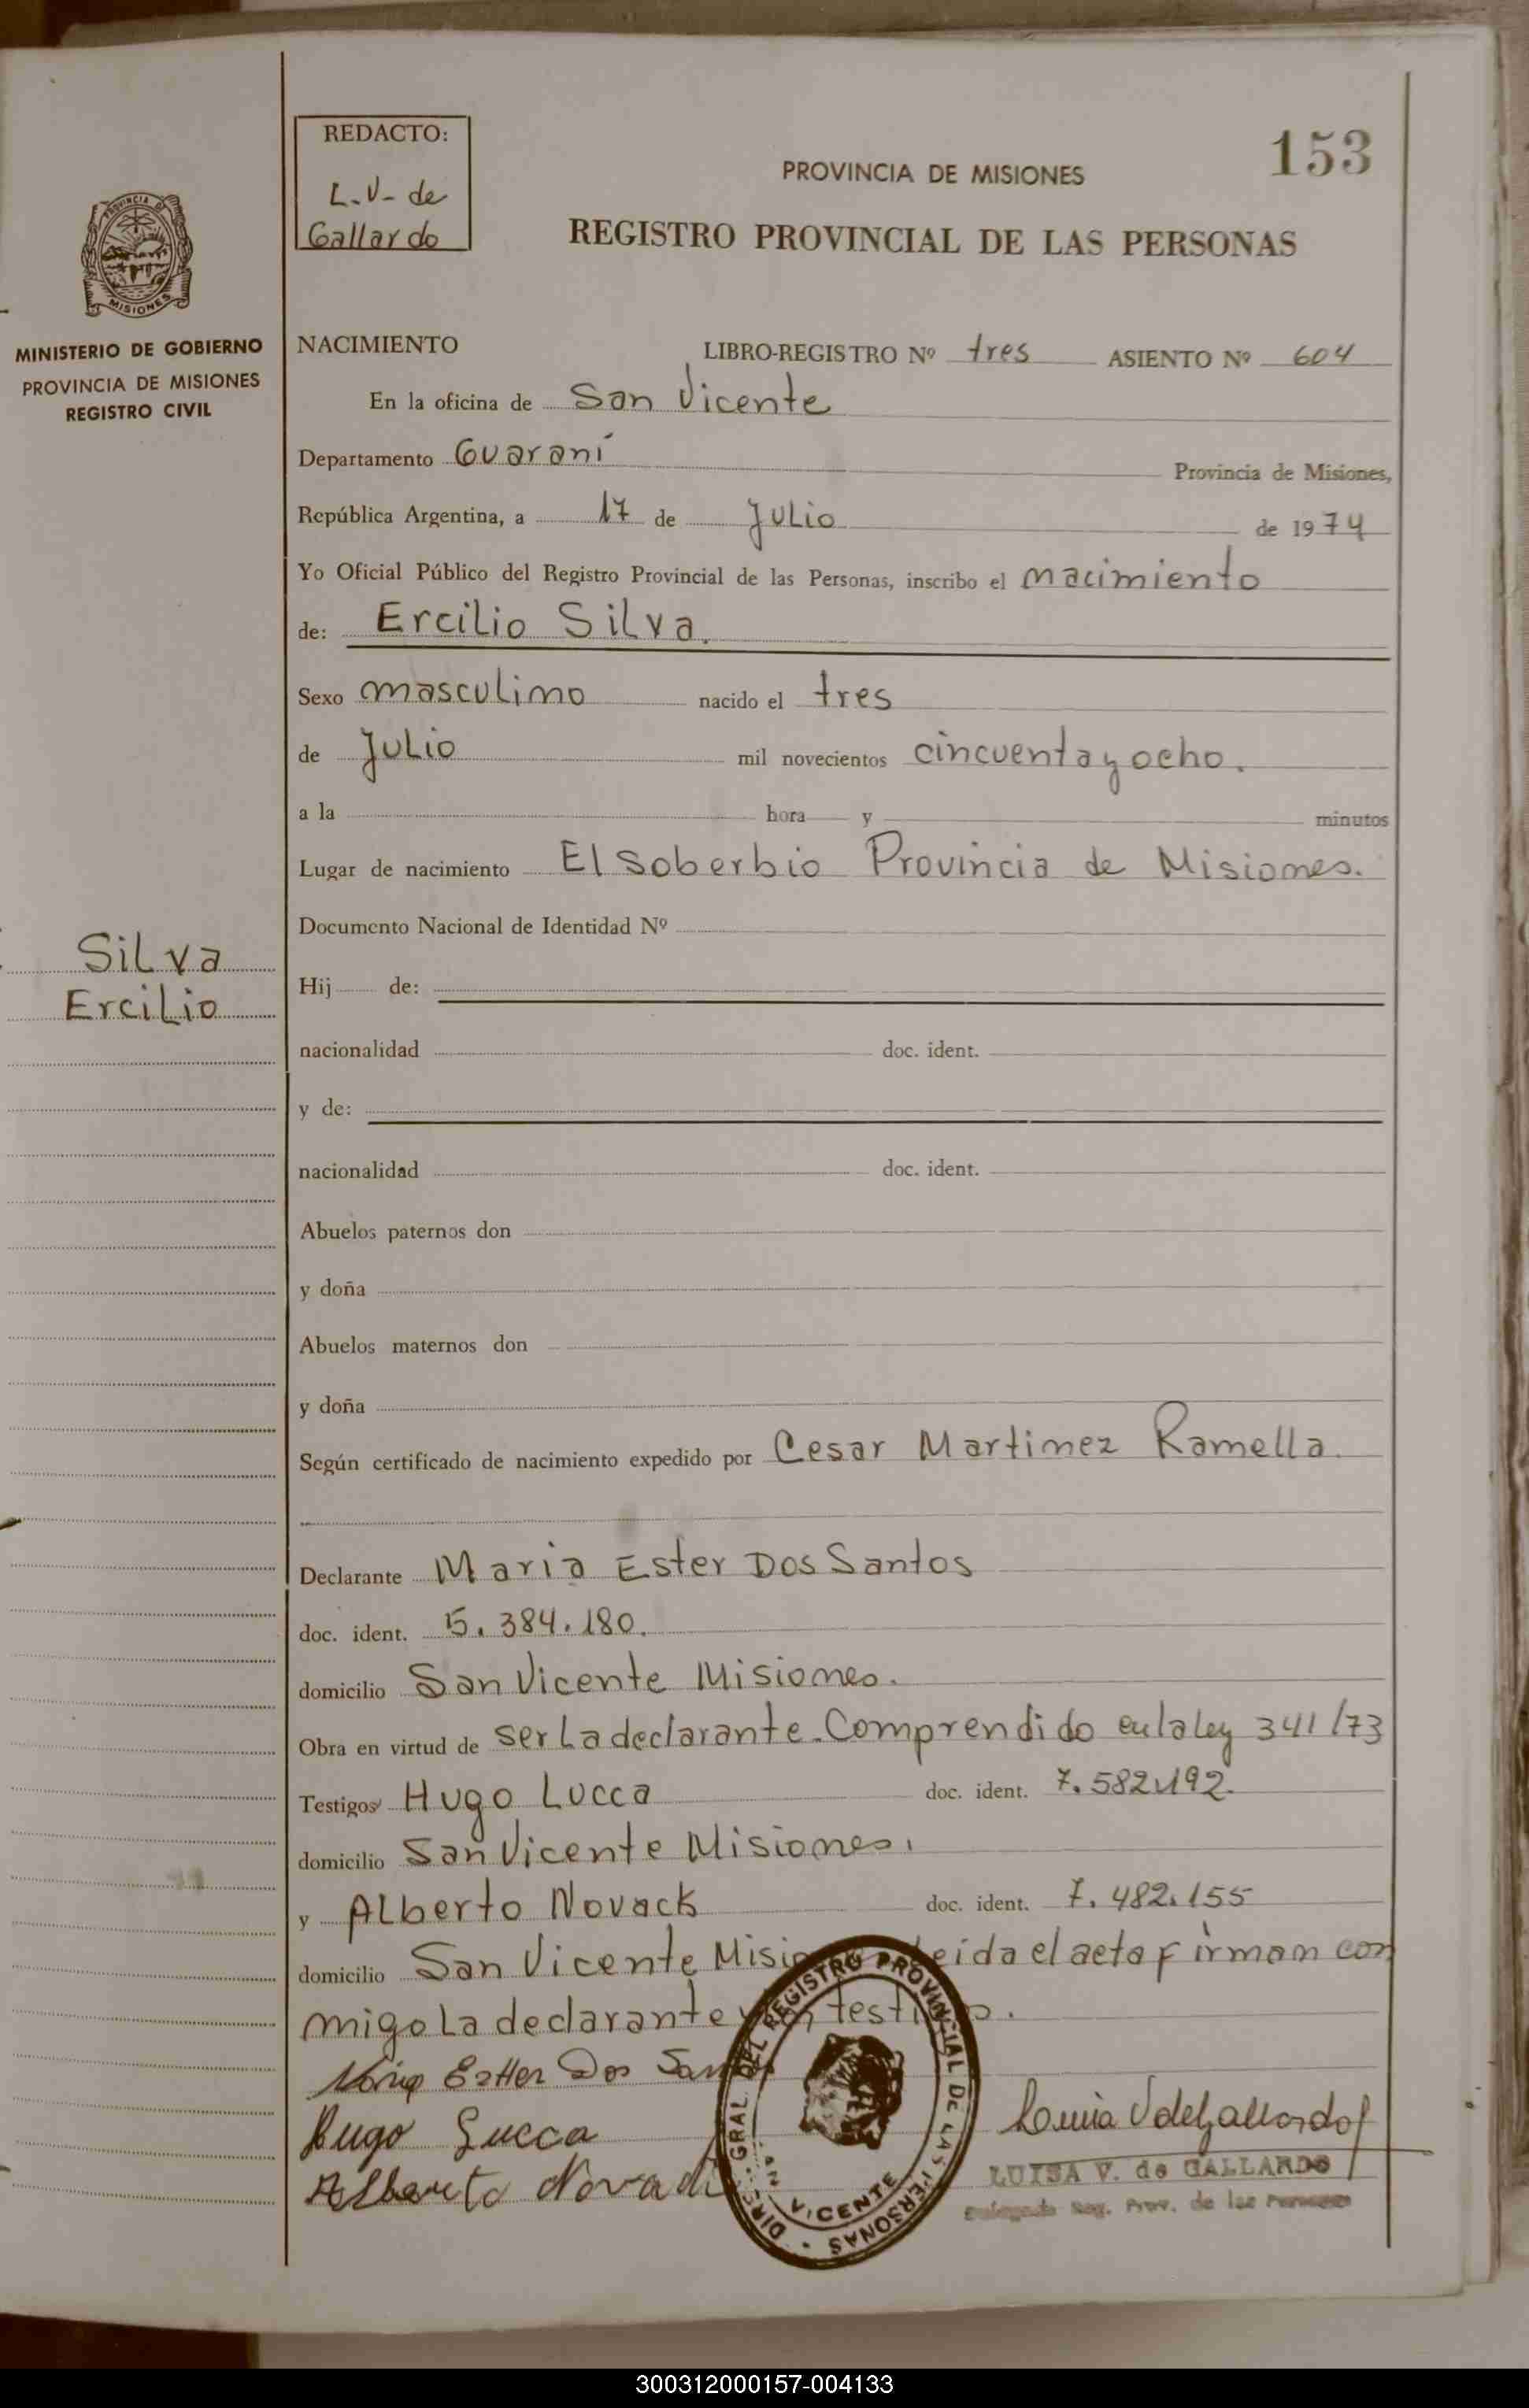 REDACTO:
L.V- de
Gallardo
153
PROVINCIA DE MISIONES
REGISTRO PROVINCIAL DE LAS PERSONAS
PROVINCIA DE
MISIONES
MINISTERIO DE GOBIERNO
PROVINCIA DE MISIONES
REGISTRO CIVIL
NACIMIENTO
LIBRO-REGISTRO Nº tres ASIENTO Nº 604
En la oficina de San Vicente
Departamento Guaraní Provincia de Misiones,
República Argentina, a 17 de Julio de 1974
Yo Oficial Público del Registro Provincial de las Personas, inscribo el nacimiento
de: Ercilio Silva.
Sexo masculino nacido el tres
de Julio mil novecientos cincuenta y ocho.
a la hora y minutos
Lugar de nacimiento El Soberbio Provincia de Misiones.
Documento Nacional de Identidad Nº
Silva
Ercilio
Hij de:
nacionalidad doc. ident.
y de:
nacionalidad doc. ident.
Abuelos paternos don
y doña
Abuelos maternos don
y doña
Según certificado de nacimiento expedido por Cesar Martinez Ramella.
Declarante Maria Ester Dos Santos
doc. ident. 5.384.180.
domicilio San Vicente Misiones.
Obra en virtud de ser La declarante. Comprendido en la ley 341/73
Testigos Hugo Lucca doc. ident. 7.582.192.
domicilio San Vicente Misiones.
y Alberto Novack doc. ident. 7.482.155
domicilio San Vicente Leida el acta firman con
migo La declarante
Ester Dos
Hugo Lucca
Alberto
DIREC. GRAL. DEL REGISTRO PROVINCIAL DE LAS PERSONAS
VICENTE
Luisa V de Gallardo
LUISA V. de GALLARDO
Delegada Reg. Prov. de las Personas
300312000157-004133